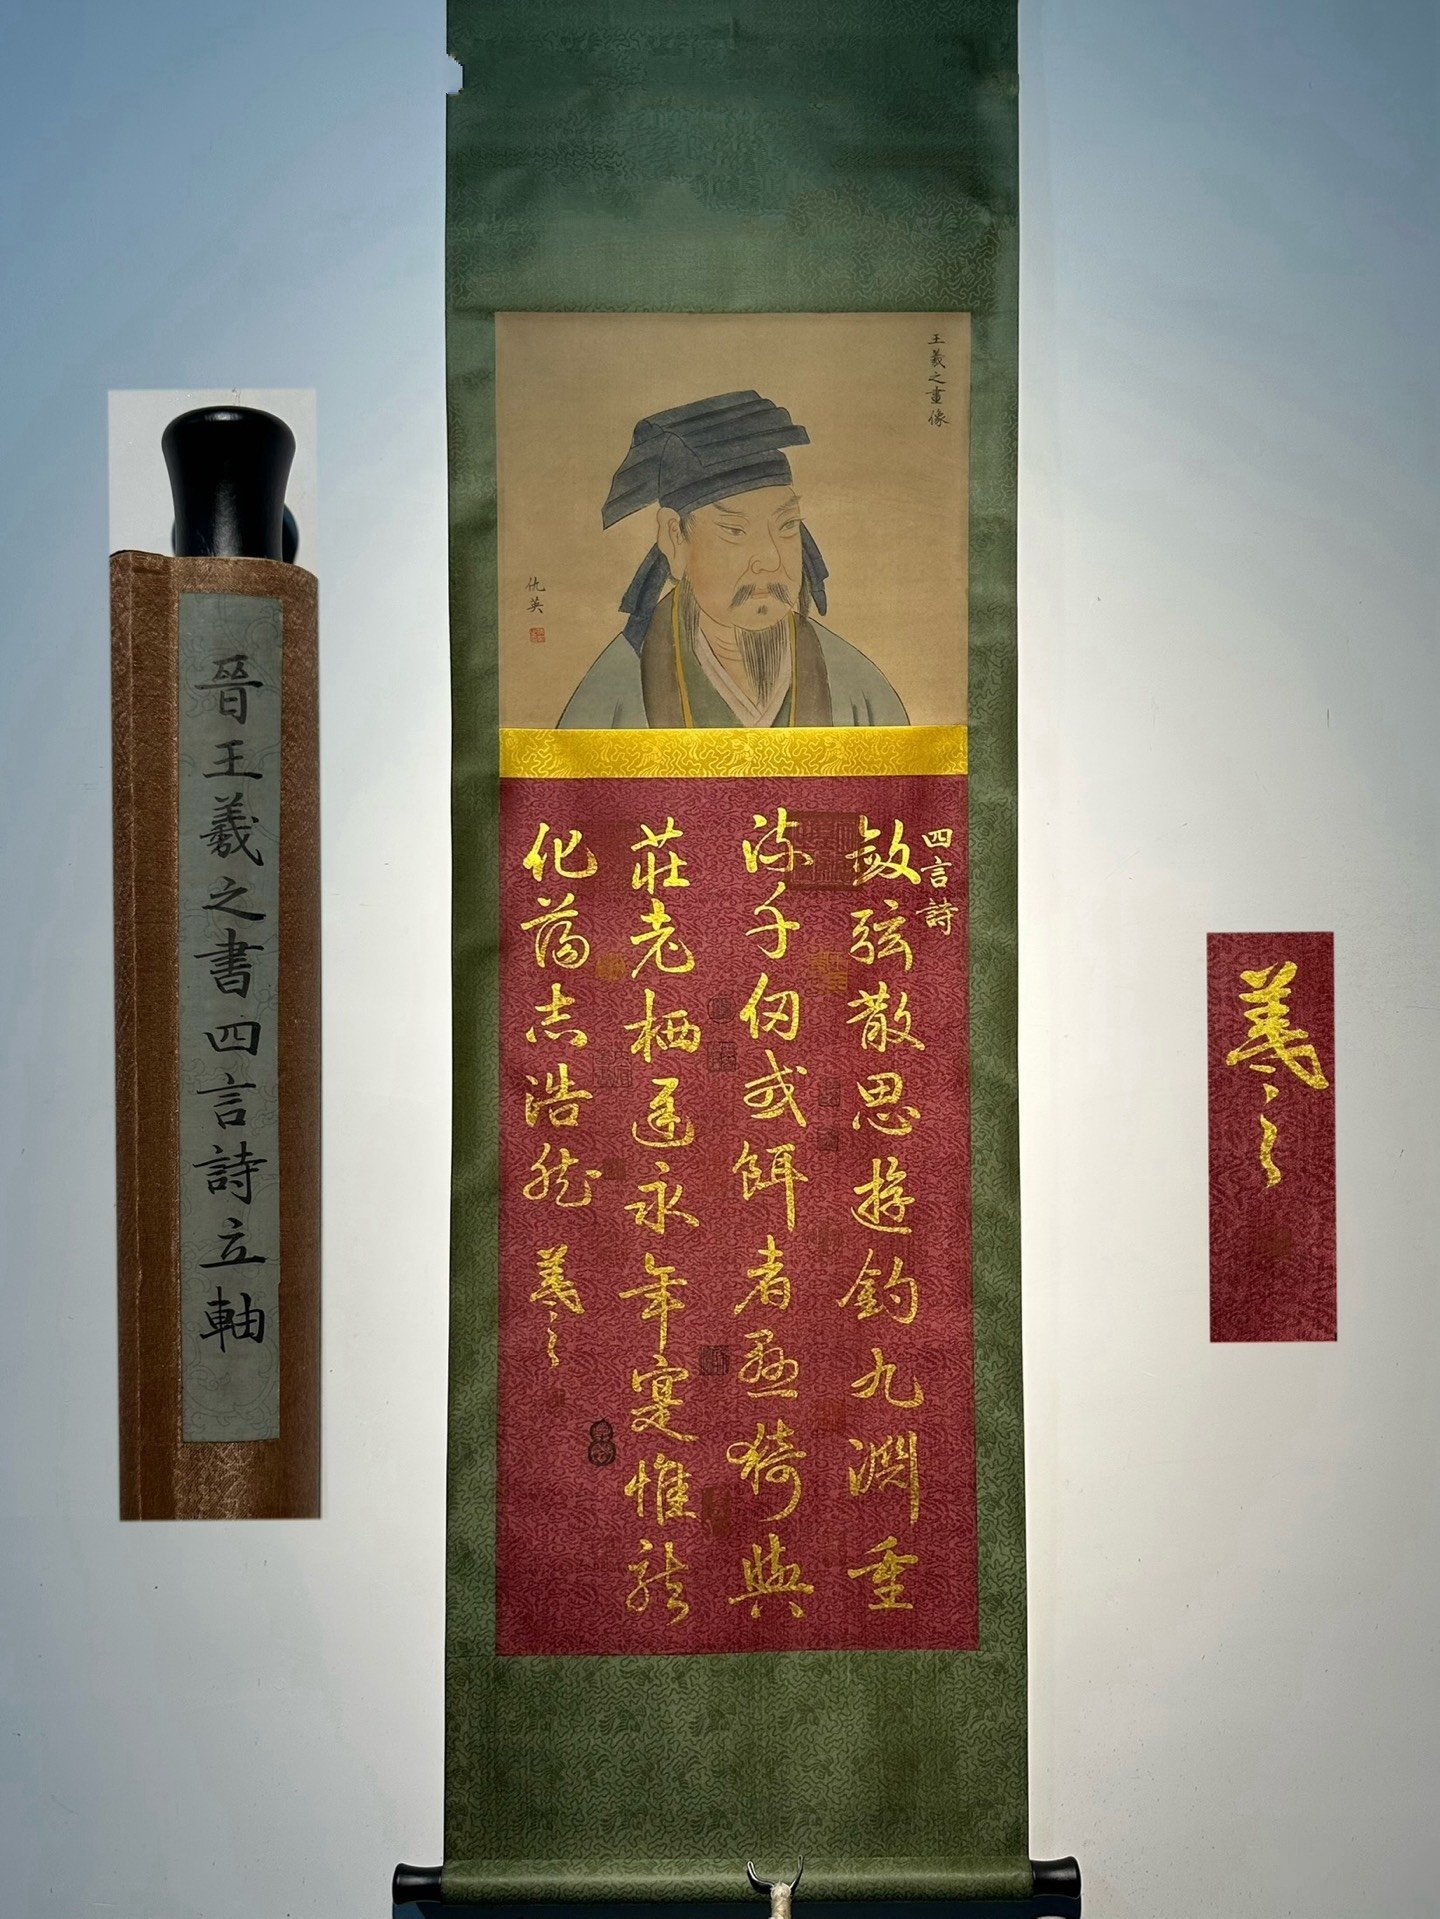 晉王羲之書四言詩立軸
王羲之畫像
仇英
四言詩
斂弦散思遊釣九淵重
流千仞或餌者懸猗與
莊老栖遲永年寔惟龍
化蕩志浩然 羲之
羲之